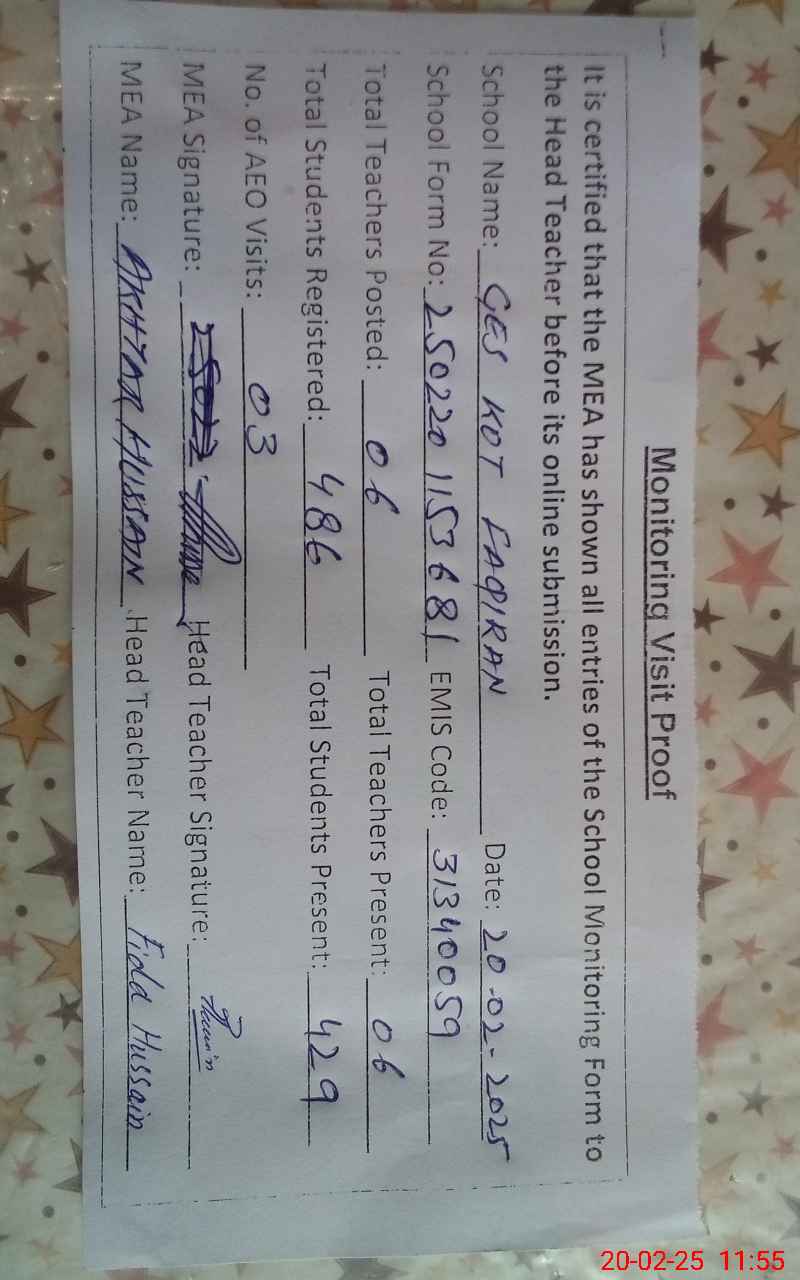 Monitoring Visit Proof
It is certified that the MEA has shown all entries of the School Monitoring Form to
the Head Teacher before its online submission.
School Name: GES KOT FAQIRAN Date: 20-02-2025
School Form No: 250220 1153681 EMIS Code: 31340059
Total Teachers Posted: 06 Total Teachers Present: 06
Total Students Registered: 486 Total Students Present: 429
No. of AEO Visits: 03
MEA Signature: Head Teacher Signature:
MEA Name: AKHTAR HUSSAIN Head Teacher Name: Fida Hussain
20-02-25 11:55